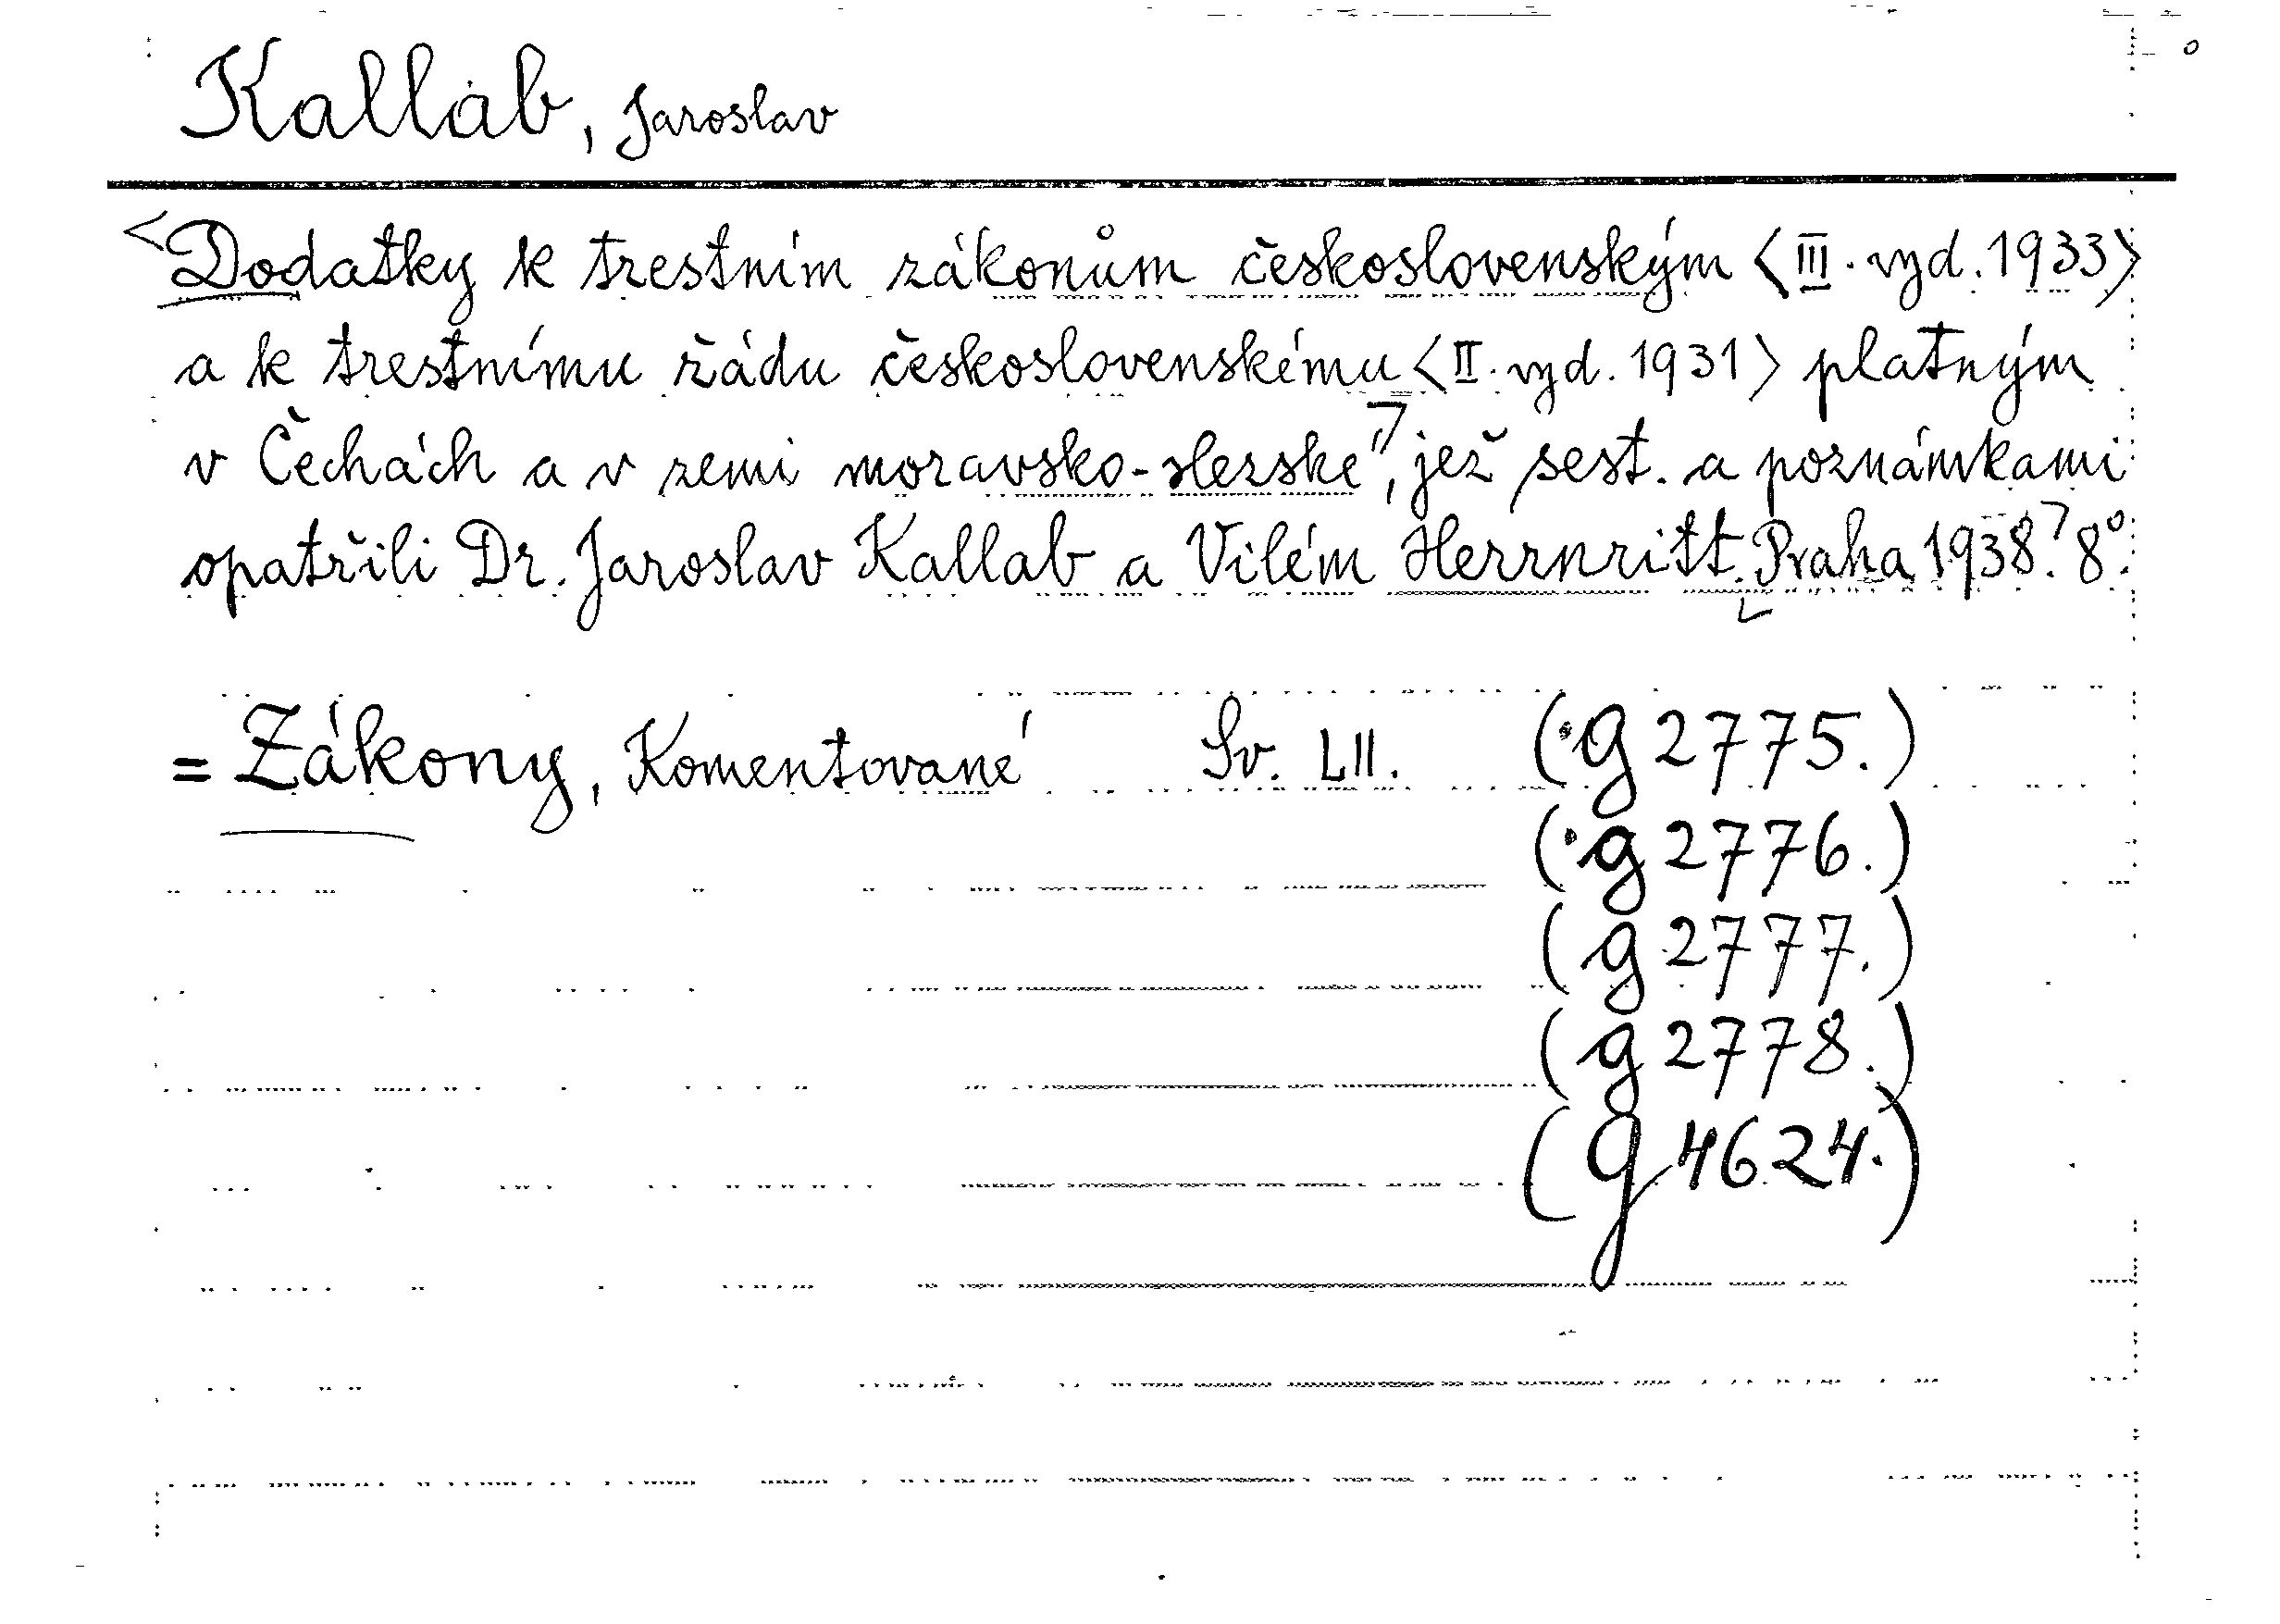 Kallab, Jaroslav
<Dodatky k trestním zákonům československým <III. vyd. 1933>
a k trestnímu řádu československému <II. vyd. 1931> platným
v Čechách a v zemi moravsko-slezské, jež sest. a poznámkami
opatřili Dr. Jaroslav Kallab a Vilém Herrnritt. Praha 1938. 8°.
= Zákony, Komentované Sv. LII. (g 2775.)
(g 2776.)
(g 2777.)
(g 2778.)
(g 4624.)